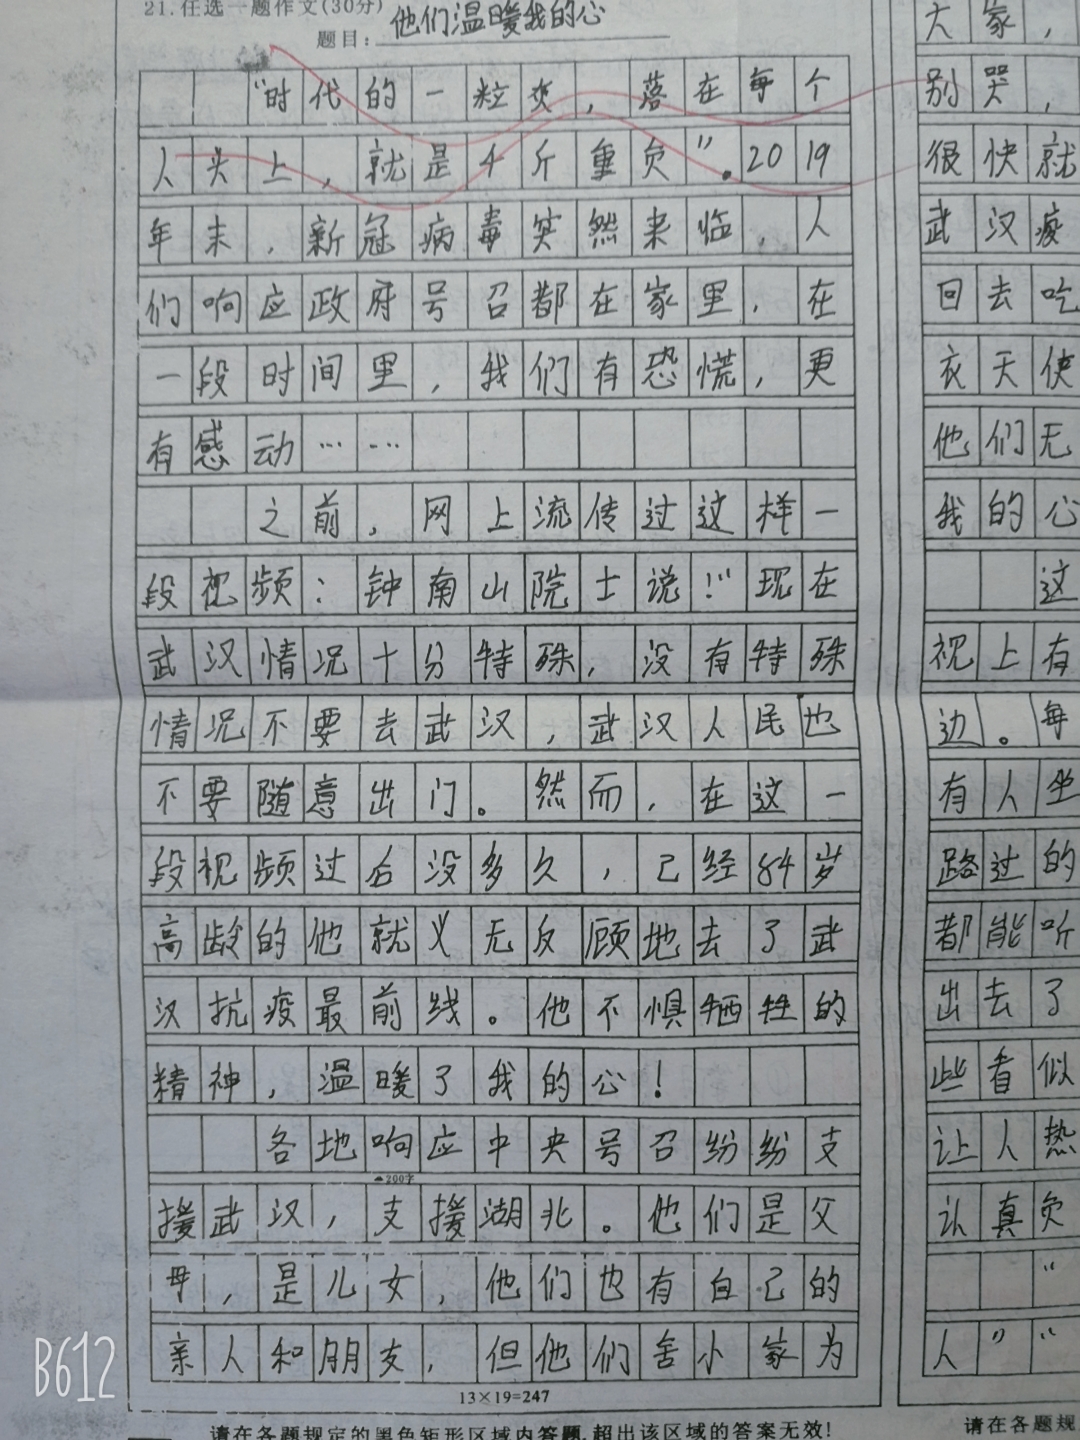 21.任选一题作文(30分)
题目: 他们温暖我的心
"时代的一粒灰，落在每个
人头上，就是千斤重负"。2019
年末，新冠病毒突然来临，人
们响应政府号召都在家里，在
一段时间里，我们有恐慌，更
有感动……
之前，网上流传过这样一
段视频：钟南山院士说！"现在
武汉情况十分特殊，没有特殊
情况不要去武汉，武汉人民也
不要随意出门。然而，在这一
段视频过后没多久，已经84岁
高龄的他就义无反顾地去了武
汉抗疫最前线。他不惧牺牲的
精神，温暖了我的心！
各地响应中央号召纷纷支
▲200字
援武汉，支援湖北。他们是父
母，是儿女，他们也有自己的
亲人和朋友，但他们舍小家为
13×19=247
请在各题规定的黑色矩形区域内答题,超出该区域的答案无效!
大家，
别哭，
很快就
武汉疫
回去吃
衣天使
他们无
我的心
这
视上有
边。每
有人坐
路过的
都能听
出去了
些看似
让人热
认真负
"
人""
请在各题规
B612